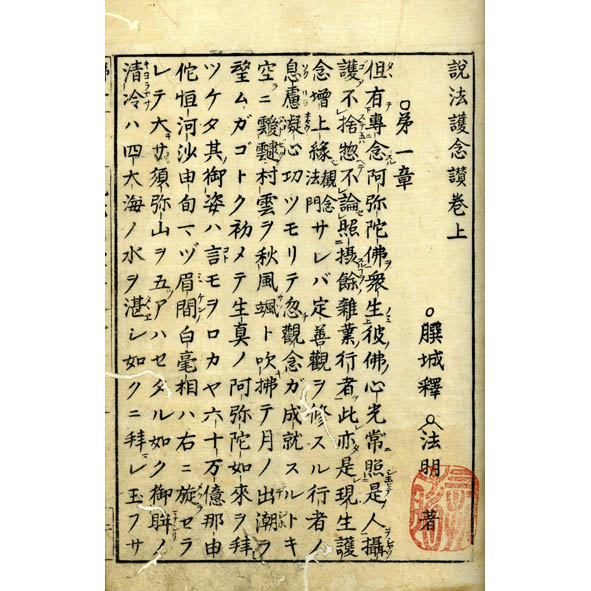 説法護念讃巻上
○膿城釋○法明著
○第一章
但有專念阿弥陀佛衆生彼佛心光常照是人攝
護不捨惣不論照摂餘雜業行者此亦是現生護
念増上縁 観念法門 サレバ定善觀ヲ修スル行者ノ
息慮凝心功ツモリテ忽觀念ガ成就スルトキ
空ニ靉靆村雲ヲ秋風颯ト吹拂テ月ノ出潮ヲ
望ムガゴトク初メテ生真ノ阿弥陀如來ヲ拜ミ
ツケタ其御姿ハ言モヲロカヤ六十万億那由
佗恒河沙由旬マヅ眉間白毫相ハ右ニ旋セラ
レテ大サ須弥山ヲ五ツアハセタル如ク御眸ノ
清冷ハ四大海ノ水ヲ湛シ如クニ拜レ玉フサ